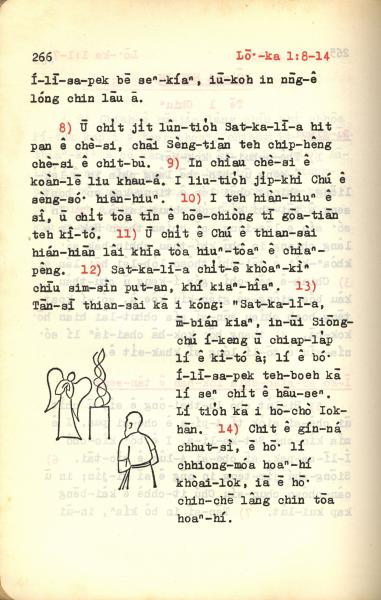 266 Lō͘-ka 1:8-14
Í-lī-sa-pek bē seⁿ-kíaⁿ, iū-koh in nn̄g-ê
lóng chin lāu ā.
8) Ū chi̍t ji̍t lûn-tio̍h Sat-ka-lī-a hit
pan ê chè-si, chāi Sèng-tiān teh chip-hêng
chè-si ê chit-bū. 9) In chiàu chè-si ê
koàn-lē liu khau-á. I liu-tio̍h ji̍p-khì Chú ê
sèng-só͘ hiàn-hiuⁿ. 10) I teh hiàn-hiuⁿ ê
sî, ū chi̍t tōa tīn ê hōe-chiòng tī gōa-tiān
teh kî-tó. 11) Ū chi̍t ê Chú ê thian-sài
hián-hiān lâi khīa tòa hiuⁿ-tôaⁿ ê chìaⁿ-
pêng. 12) Sat-ka-lī-a chi̍t-ē khòaⁿ-kìⁿ
chīu sim-sîn put-an, khí kiaⁿ-hîaⁿ. 13)
Tān-sī thian-sài kā i kóng: "Sat-ka-lī-a,
m̄-bián kiaⁿ, in-ūi Siōng-
chú í-keng ū chiap-la̍p
lí ê kî-tó à; lí ê bó͘
Í-lī-sa-pek teh-boeh kā
lí seⁿ chi̍t ê hāu-seⁿ.
Lí tio̍h kā i hō-chò Iok-
hān. 14) Chit ê gín-ná
chhut-sì, ē hō͘ lí
chhiong-móa hoaⁿ-hí
khòai-lo̍k, iā ē hō͘
chin-chē lâng chin tōa
hoaⁿ-hí.